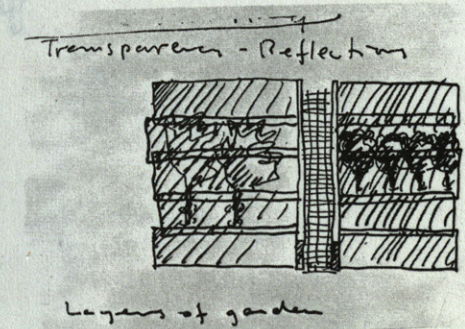 Transparency - Reflection
Layers of garden